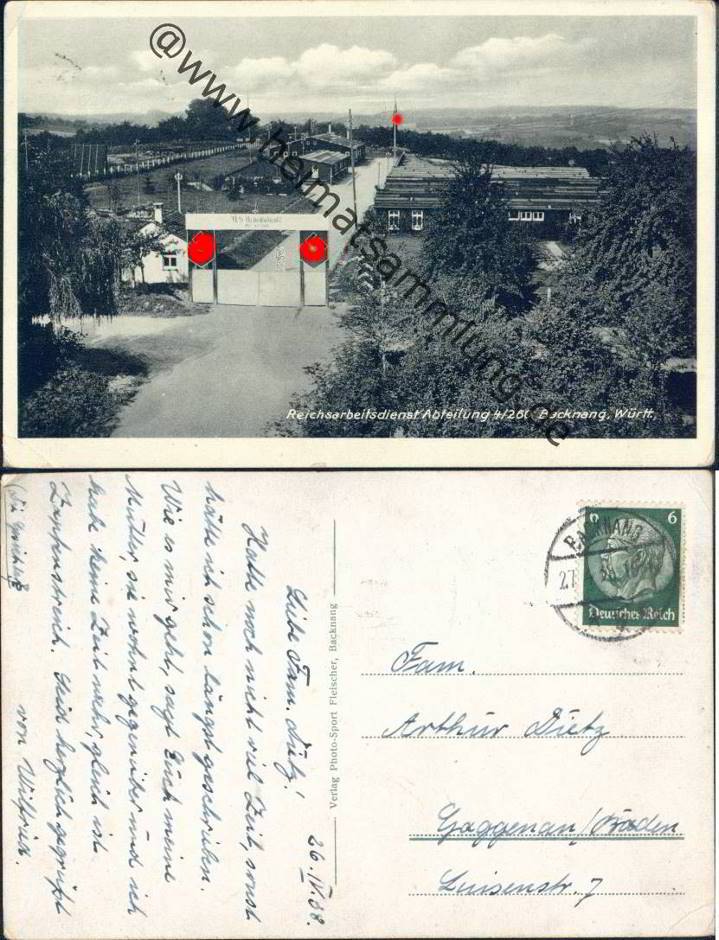 @www.heimatsammlung.de
Reichsarbeitsdienst Abteilung 4/260 Backnang, Württ.
26. IV 38.
Liebe Fam. Dietz!
Hatte noch nicht viel Zeit, sonst
hätte ich schon längst geschrieben.
Wie es mir geht, sagt Euch meine
Mutter, sie wohnt gegenüber und ich
habe keine Zeit mehr, gleich ist
Zapfenstreich. Seid herzlich gegrüßt
von Wilfried.
Verlag Photo-Sport Fleischer, Backnang
BACKNANG
27
6
Deutsches Reich
Fam.
Arthur Dietz
Gaggenau/Baden
Luisenstr. 7